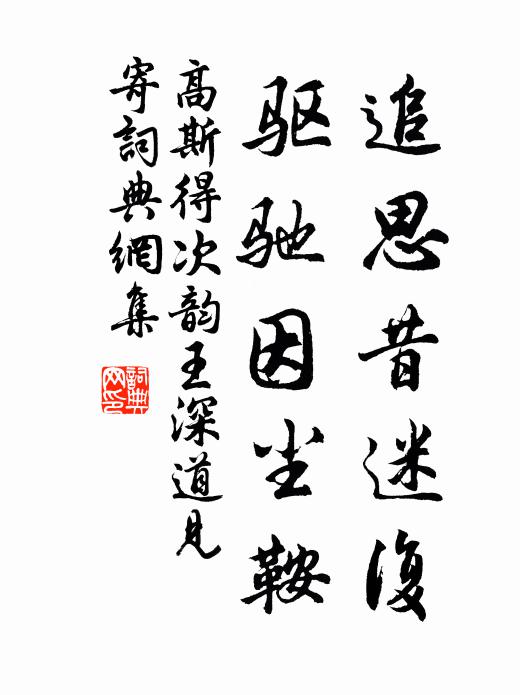 追思昔迷復
驱驰因尘鞍
高斯得次韵王深道見
寄詞典網集
詞典網印